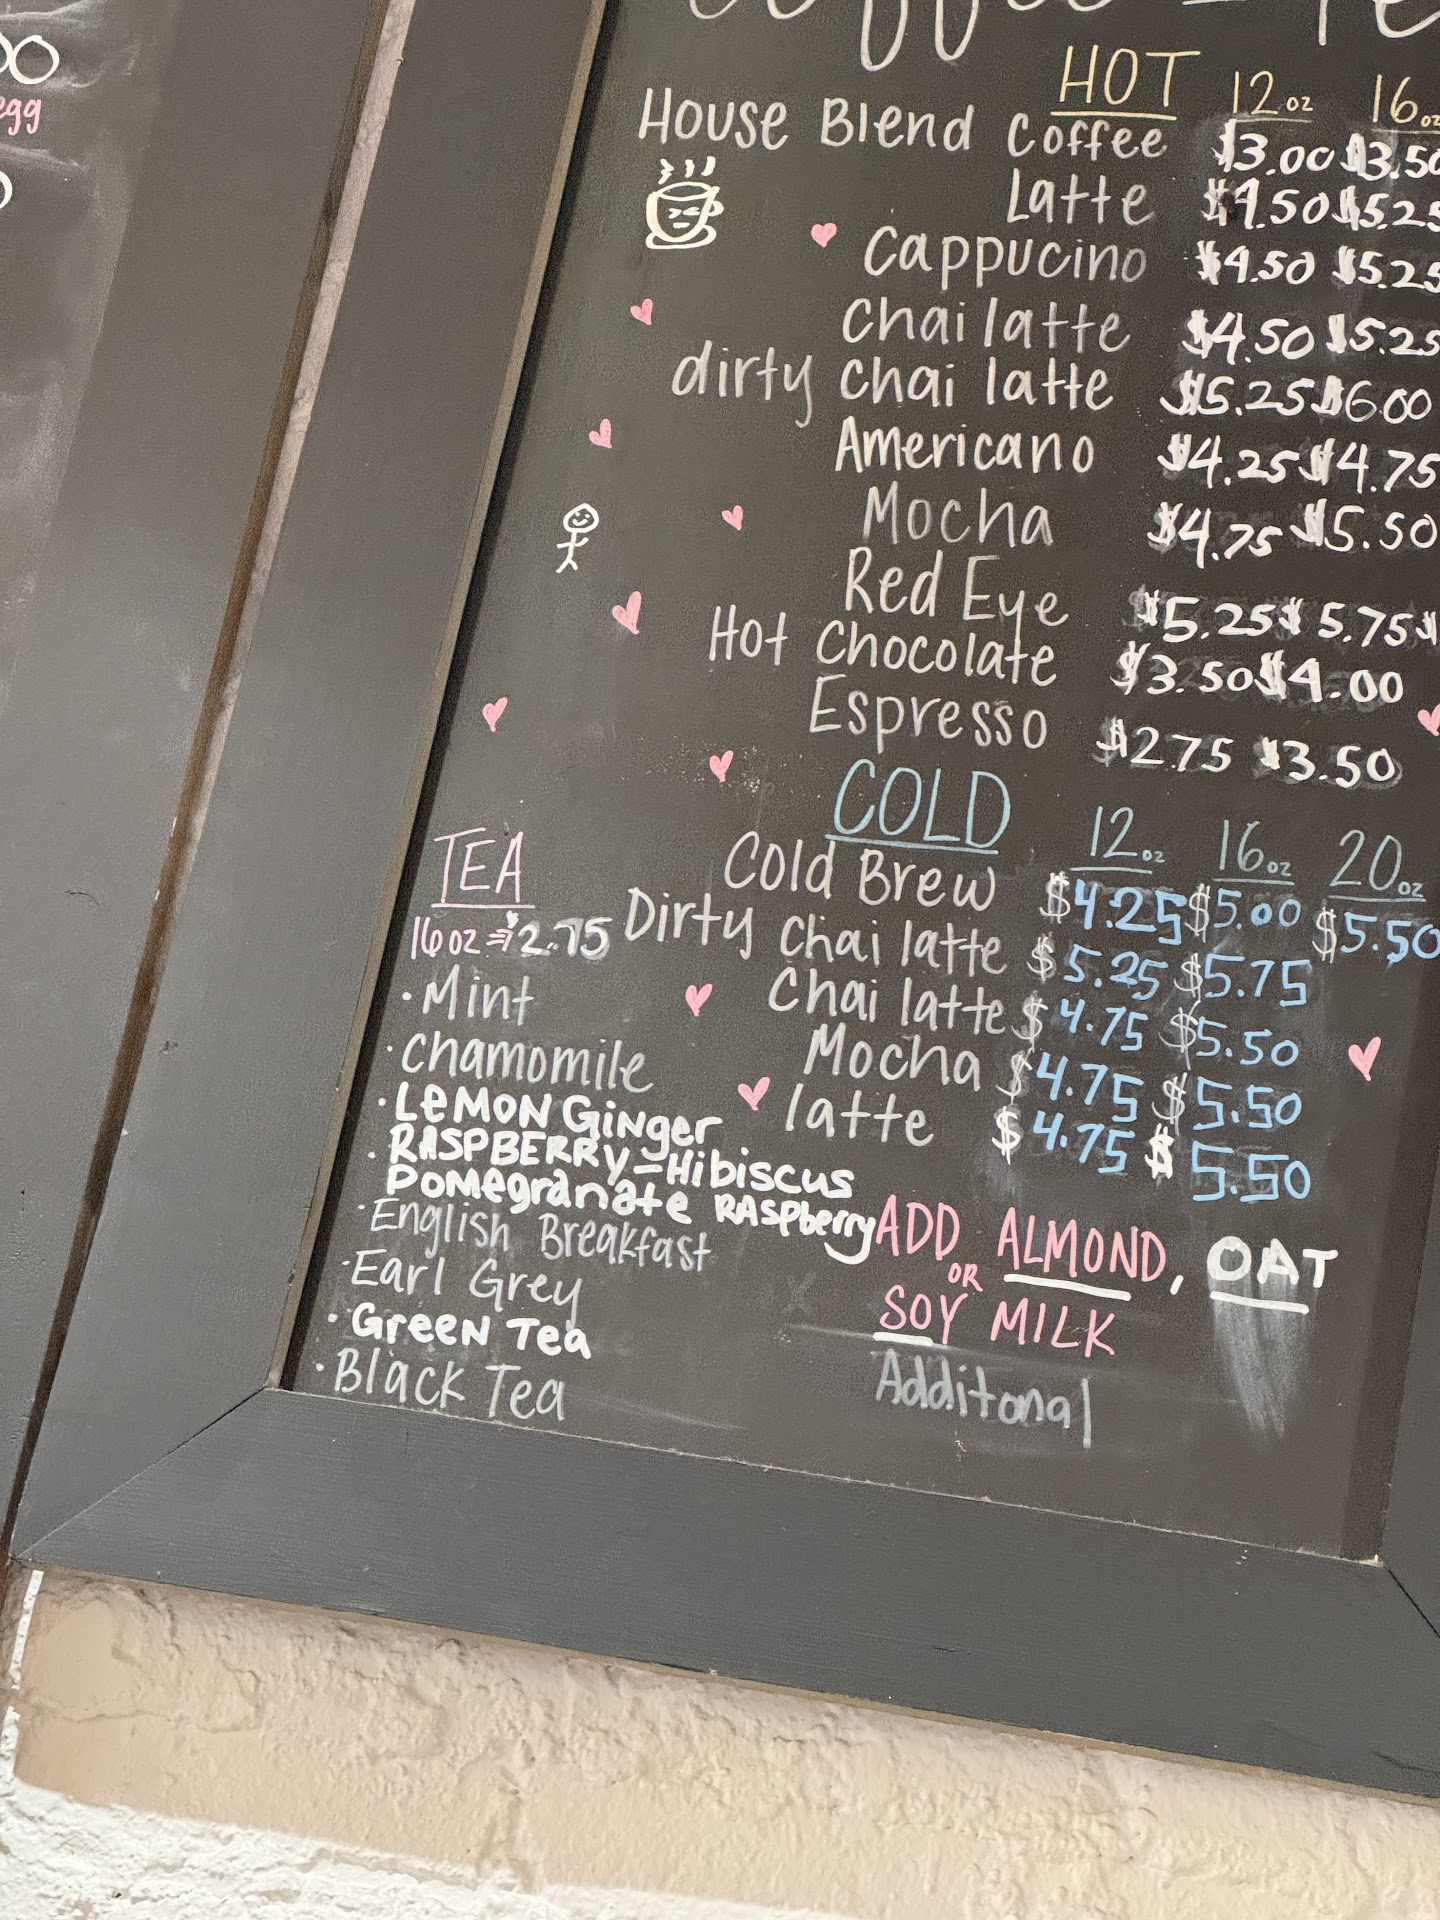 egg
HOT 12oz 16oz
House Blend Coffee $3.00 $3.50
Latte $4.50 $5.25
Cappucino $4.50 $5.25
Chai latte $4.50 $5.25
dirty Chai latte $5.25 $6.00
Americano $4.25 $4.75
Mocha $4.75 $5.50
Red Eye $5.25 $5.75 $
Hot Chocolate $3.50 $4.00
Espresso $2.75 $3.50
COLD 12oz 16oz 20oz
Cold Brew $4.25 $5.00 $5.50
Dirty Chai latte $5.25 $5.75
Chai latte $4.75 $5.50
Mocha $4.75 $5.50
latte $4.75 $5.50
TEA
16oz ⇒ $2.75
·Mint
·Chamomile
·LeMON GiNger
·RASPBERRy-Hibiscus
Pomegranate RASpberry
·English Breakfast
·Earl Grey
·GreeN Tea
·Black Tea
ADD ALMOND, OAT
OR
SOY MILK
Additonal